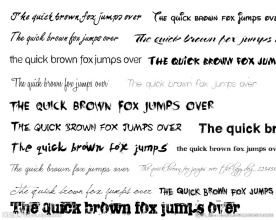 The quick brown fox jumps over THE QUICK BROWN FOX JUMPS
The quick brown fox jumps over The quick brown fox
the quick brown fox jumps over THE QUICK BROWN FOX JUM
The quick brown fox jumps over the quick brown fox jumps over
THE QUICK BROWN FOX JUMPS OVER
THE QUICK BROWN FOX JUMPS OVER The quick brown
The quick brown fox jumps the quick brown fox jumps
The quick brown fox jumps over The quick brown fox jumps over
The quick brown fox jumps over THE QUICK BROWN FOX JUMPS
The quick brown fox jumps over